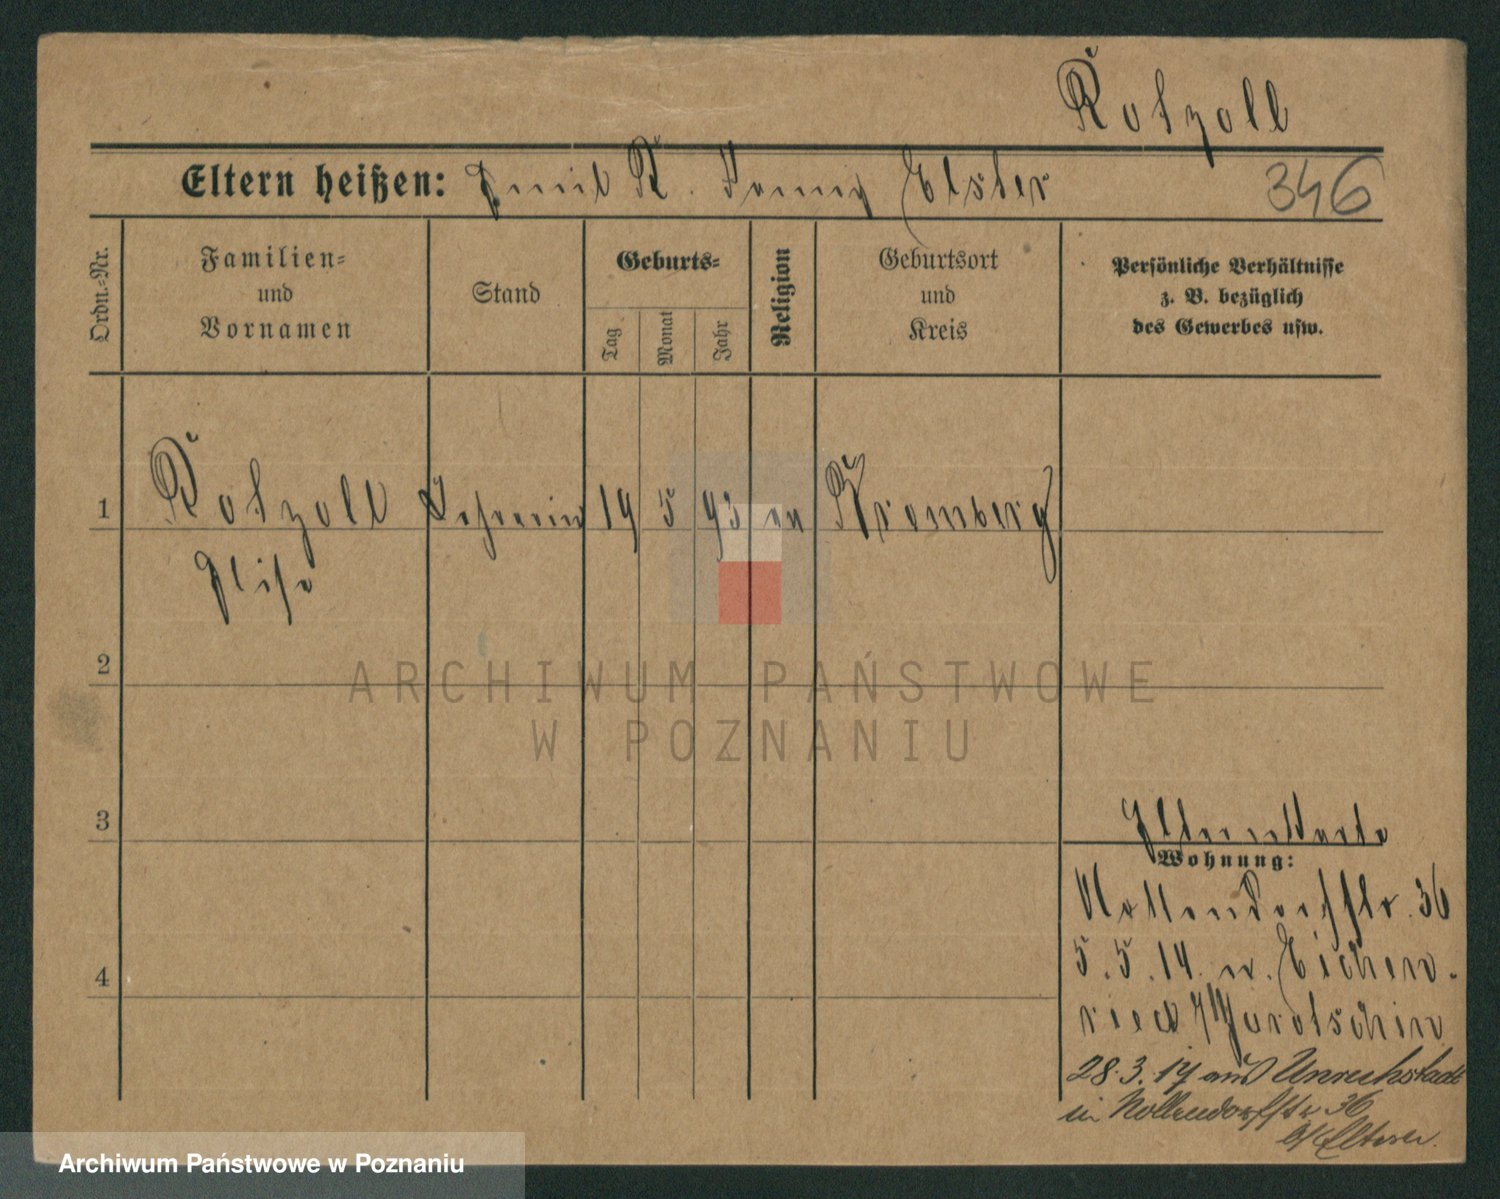 Rotzoll
Eltern heißen: Emil R. Fanny Elster
346
Ordn.=Nr.
Familien=
und
Vornamen
Stand
Geburts=
Tag
Monat
Jahr
Religion
Geburtsort
und
Kreis
Persönliche Verhältnisse
z. B. bezüglich
des Gewerbes usw.
1 Rotzoll Lehrerin 19 5 93 ev Bromberg
Elise
2
ARCHIWUM PAŃSTWOWE
W POZNANIU
3
Elternkarte
Wohnung:
Nollendorfstr. 36
5.5.14. n. Eichen-
ried / Jarotschin
28.3.17 aus Unruhstadt
in Nollendorfstr 36
b/ Eltern.
4
Archiwum Państwowe w Poznaniu